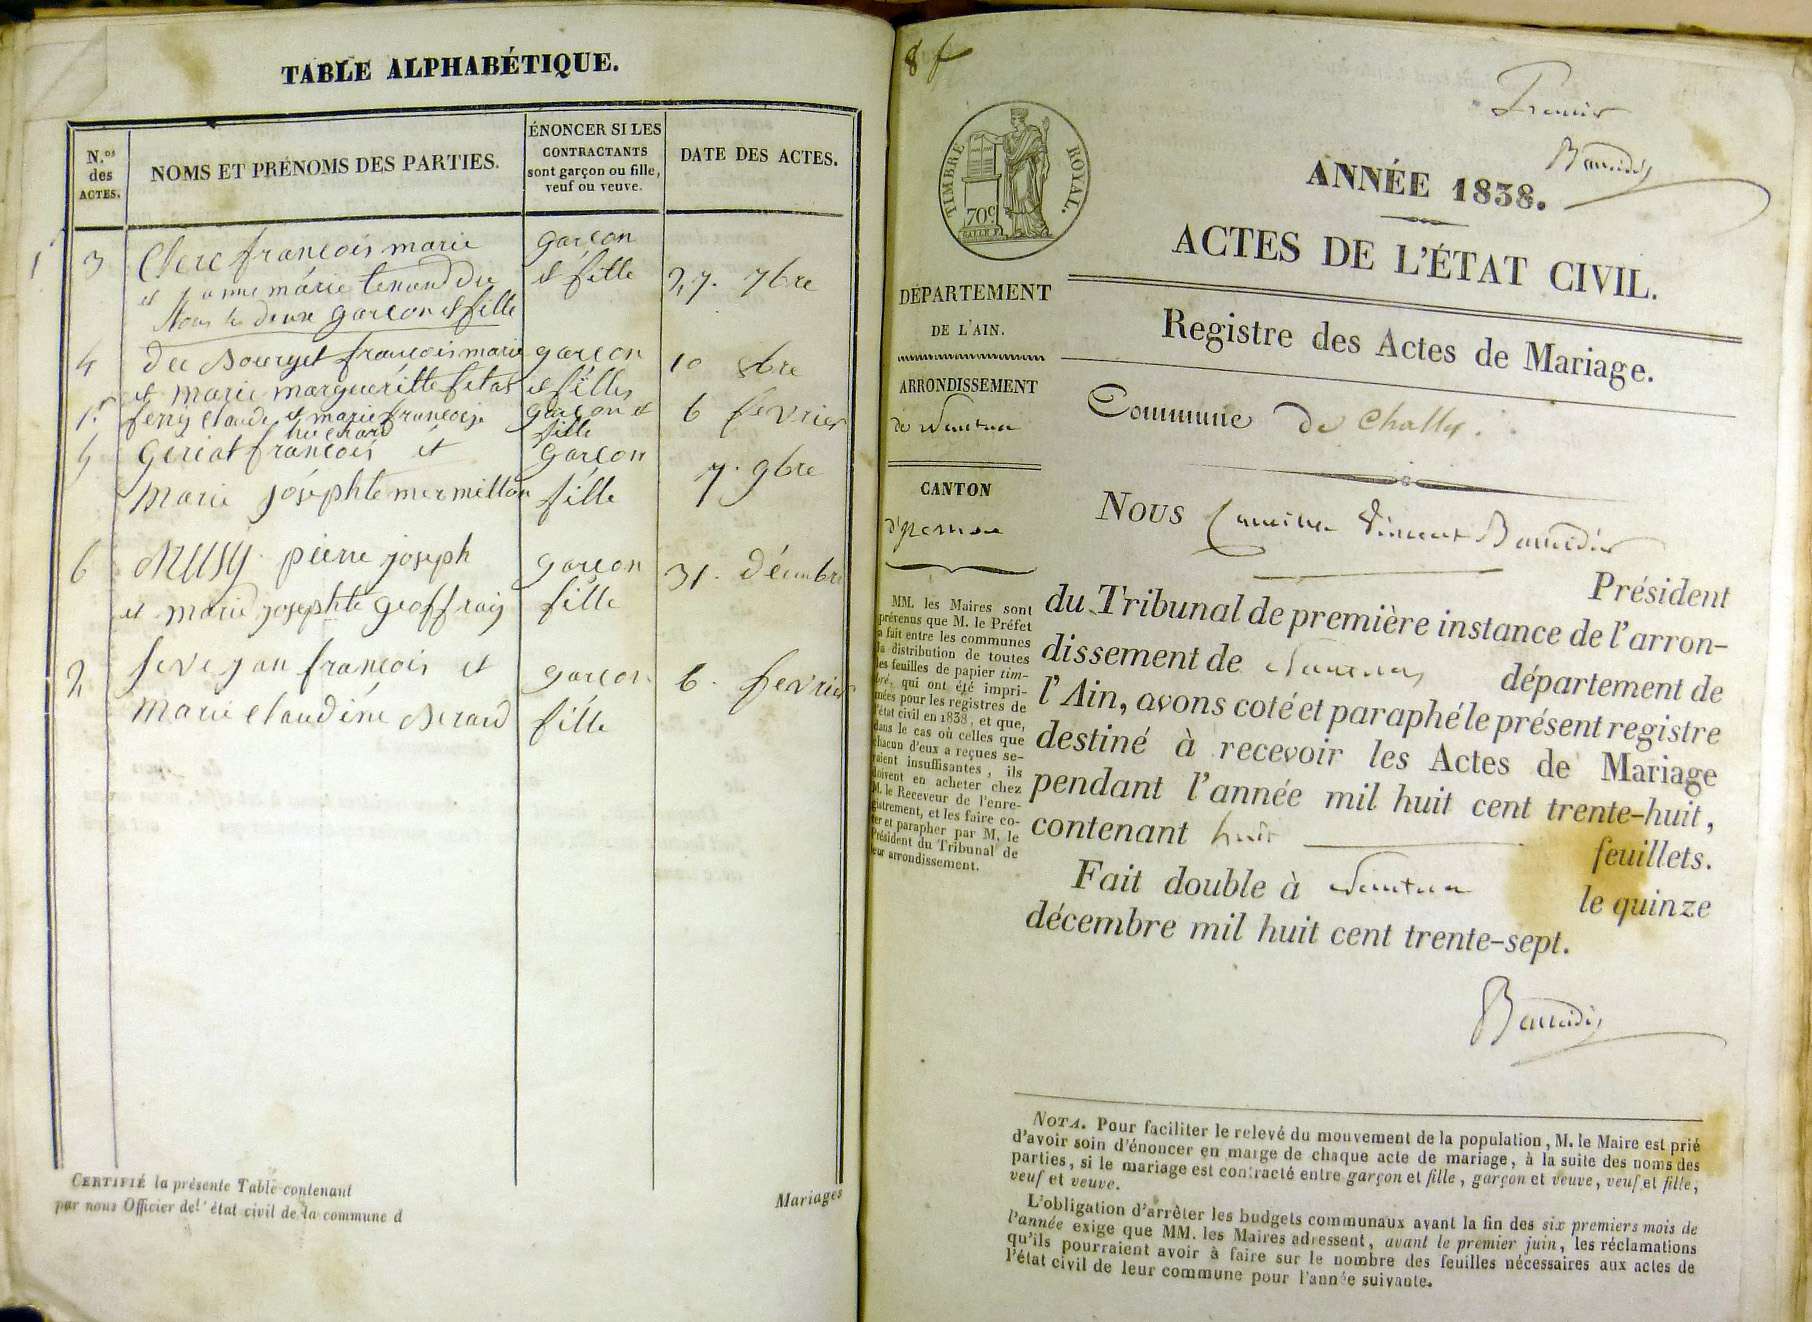 TABLE ALPHABÉTIQUE.
N.os des ACTES.
NOMS ET PRÉNOMS DES PARTIES.
ÉNONCER SI LES CONTRACTANTS sont garçon ou fille, veuf ou veuve.
DATE DES ACTES.
1 3 Clerc françois marie garçon
et anne marie tenand du et fille 27. 7bre
tous les deux garçon et fille
4 du Bourget françois marie garçon 10 8bre
et marie marguéritte et filles
1. claude et marie françoise garçon et 6 fevrier
fille
5 françois et garçon 7. 9bre
Marie joséphte mermillon fille
6 pierre joseph garçon 31. décembre
et marie josephte geoffray fille
2 françois et garçon 6. fevrier
Marie claudine fille
CERTIFIÉ la présente Table contenant
par nous Officier de l'état civil de la commune d
Mariages
8 f
Premier
TIMBRE ROYAL.
70c
ANNÉE 1838.
ACTES DE L'ÉTAT CIVIL.
DÉPARTEMENT
DE L'AIN.
Registre des Actes de Mariage.
ARRONDISSEMENT
de Nantua
Commune de Challex.
CANTON
Nous Vincent
Président
du Tribunal de première instance de l'arron-
dissement de Nantua département de
l'Ain, avons coté et paraphé le présent registre
destiné à recevoir les Actes de Mariage
pendant l'année mil huit cent trente-huit,
contenant huit feuillets.
Fait double à Nantua le quinze
décembre mil huit cent trente-sept.
MM. les Maires sont
prévenus que M. le Préfet
a fait entre les communes
la distribution de toutes
les feuilles de papier tim-
bré, qui ont été impri-
mées pour les registres de
l'état civil en 1838, et que,
dans le cas où celles que
chacun d'eux a reçues se-
raient insuffisantes, ils
doivent en acheter chez
M. le Receveur de l'enre-
gistrement, et les faire co-
ter et parapher par M. le
Président du Tribunal de
leur arrondissement.
NOTA. Pour faciliter le relevé du mouvement de la population, M. le Maire est prié
d'avoir soin d'énoncer en marge de chaque acte de mariage, à la suite des noms des
parties, si le mariage est contracté entre garçon et fille, garçon et veuve, veuf et fille,
veuf et veuve.
L'obligation d'arrêter les budgets communaux avant la fin des six premiers mois de
l'année exige que MM. les Maires adressent, avant le premier juin, les réclamations
qu'ils pourraient avoir à faire sur le nombre des feuilles nécessaires aux actes de
l'état civil de leur commune pour l'année suivante.